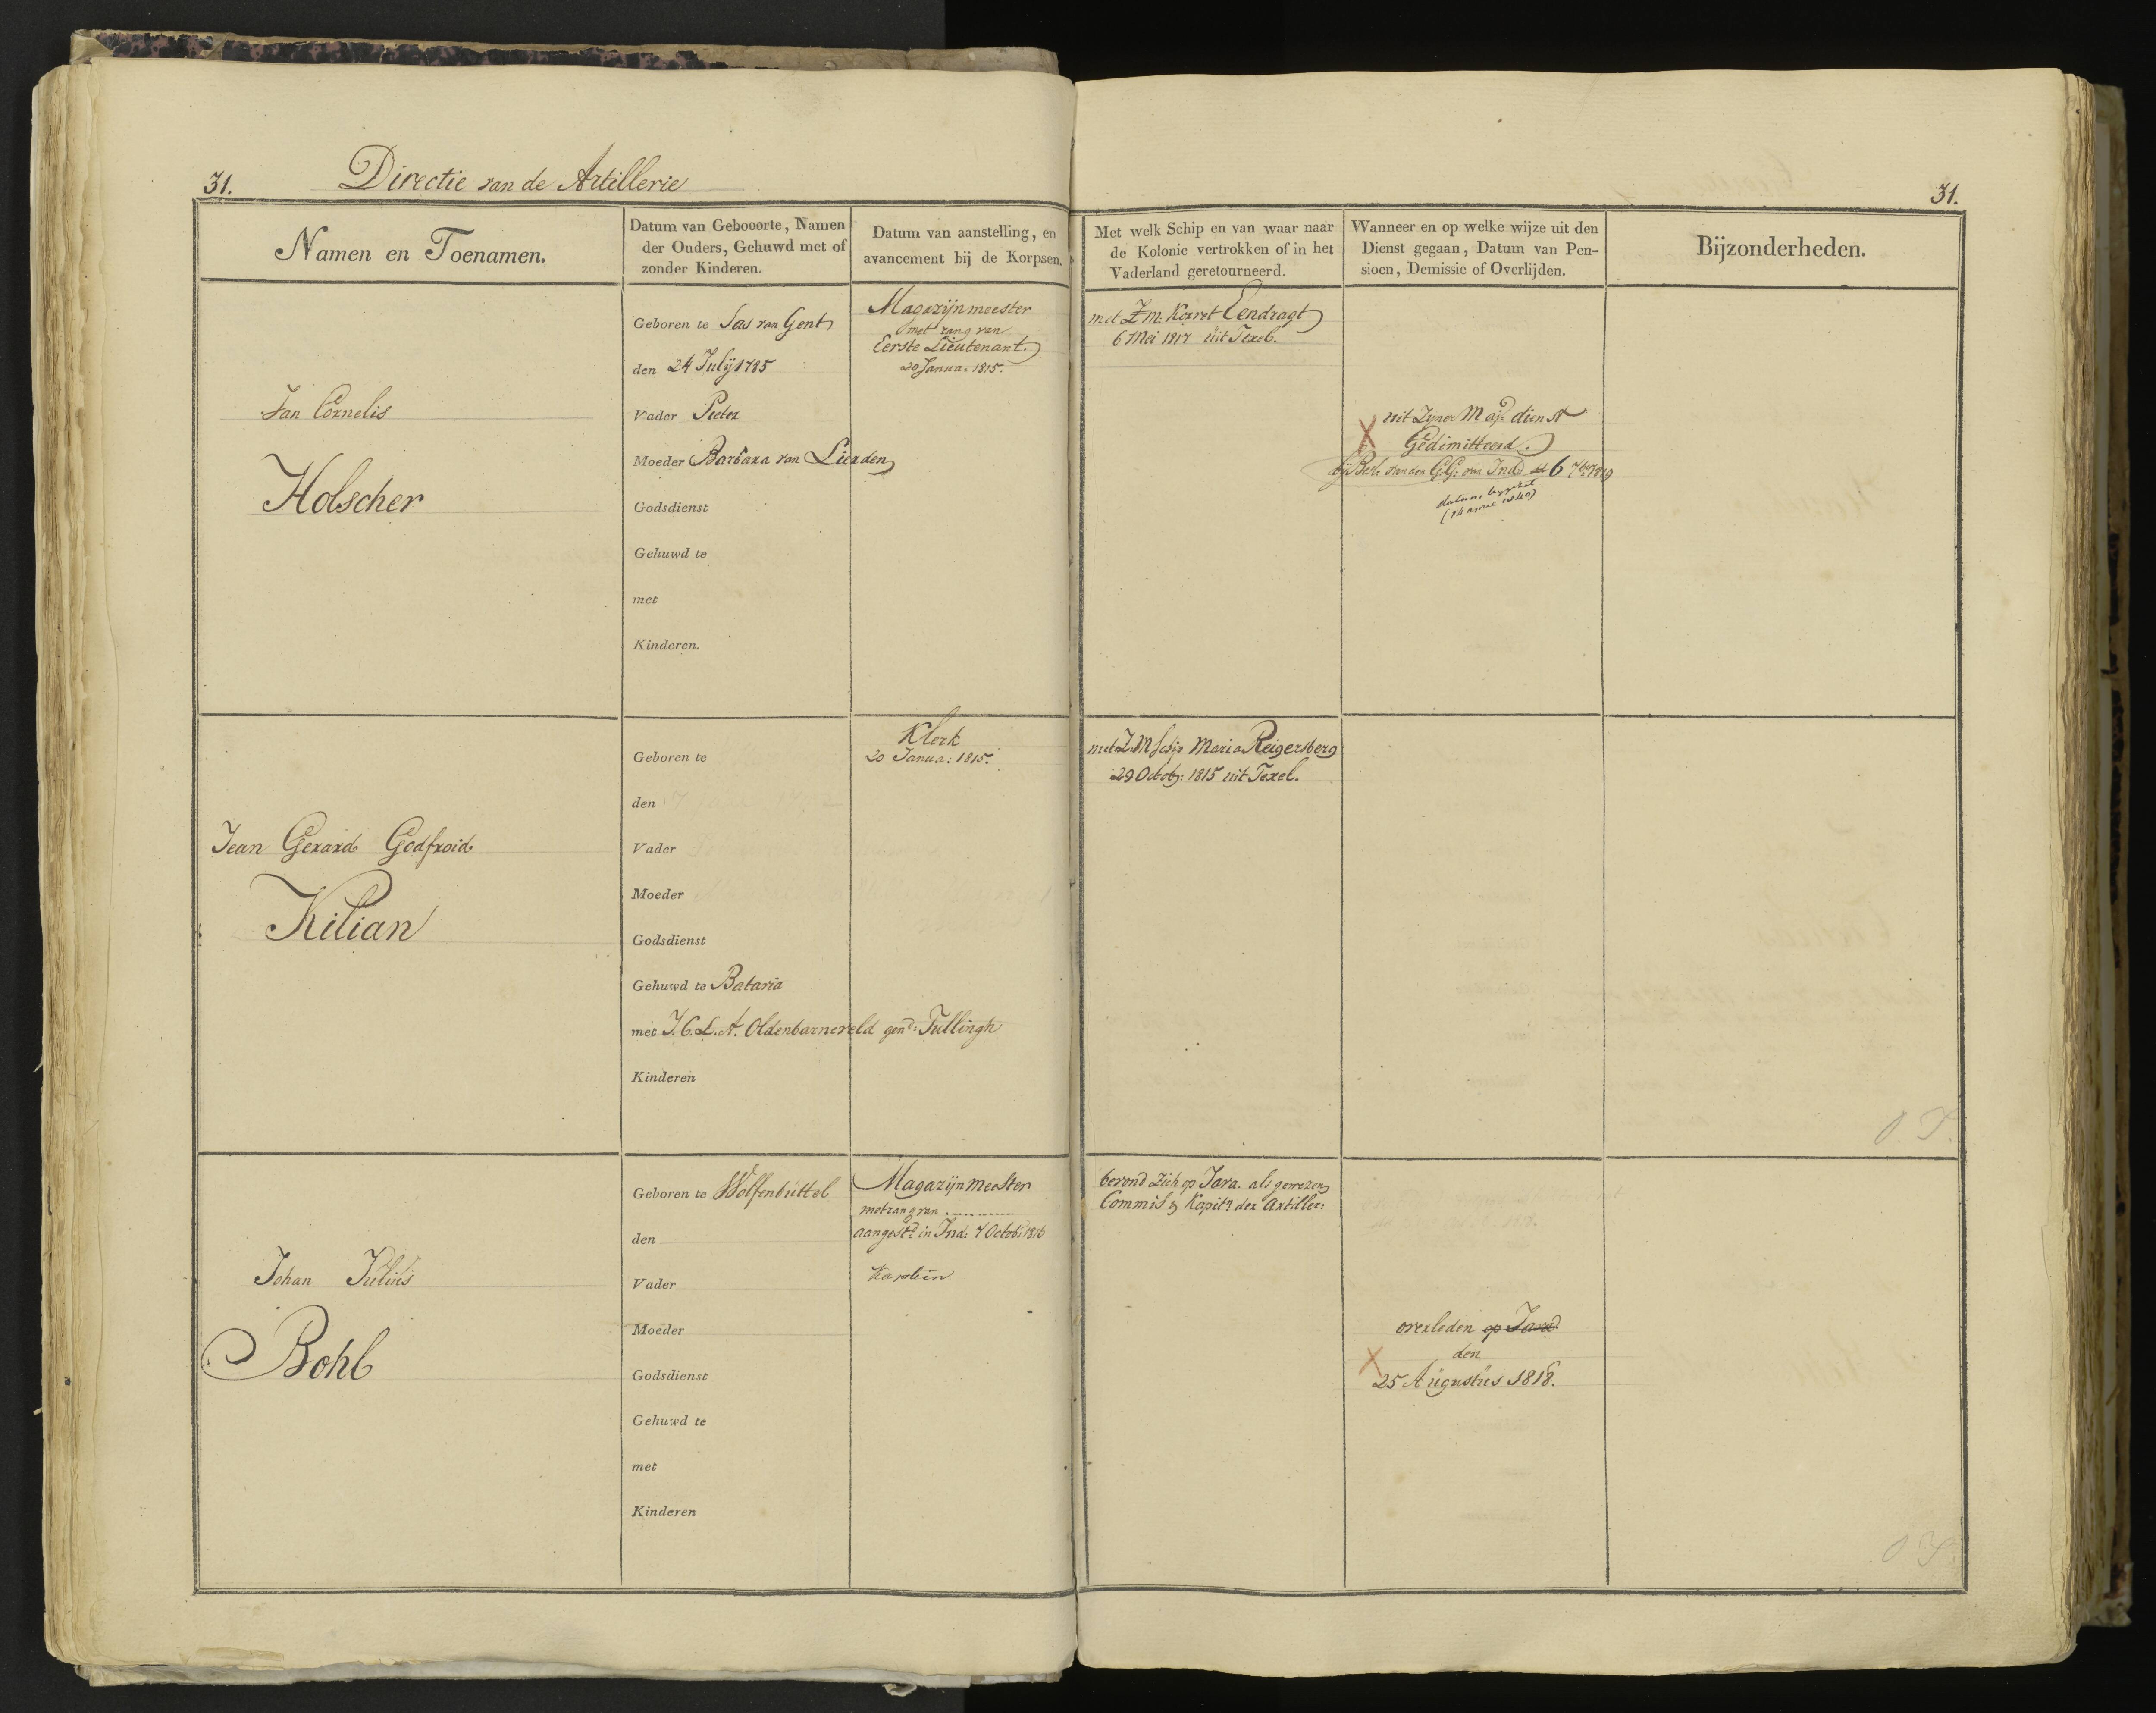 31. Directie van de Artillerie
31.
Namen en Toenamen.
Datum van Gebooorte, Namen
der Ouders, Gehuwd met of
zonder Kinderen.
Datum van aanstelling, en
avancement bij de Korpsen.
Met welk Schip en van waar naar
de Kolonie vertrokken of in het
Vaderland geretourneerd.
Wanneer en op welke wijze uit den
Dienst gegaan, Datum van Pen-
sioen, Demissie of Overlijden.
Bijzonderheden.
Jan Cornelis
Holscher
Geboren te Sas van Gent
den 24 Julÿ 1785
Vader Pieter
Moeder Barbara van Lierden
Godsdienst
Gehuwd te
met
Kinderen.
Magazijnmeester
met rang van
Eerste Lieutenant.
20 Janua: 1815.
met Z.M. Korvet Eendragt
6 Mei 1817 uit Texel.
uit Zyner Majt. dienst
Gedimitteerd.
bÿ Besl. van den GG: van Ind: 6 7br 1819
(14 april 1840)
Jean Gerard Godfroid
Kilian
Geboren te
den
Vader
Moeder
Godsdienst
Gehuwd te Batavia
met J.C.L.A. Oldenbarneveld gend: Tullingh
Kinderen
Klerk
20 Janua: 1815.
met Z.M Schip Maria Reigersberg
29 Octob: 1815 uit Texel.
O.I.
Johan Julius
Bohl
Geboren te Wolfenbuttel
den
Vader
Moeder
Godsdienst
Gehuwd te
met
Kinderen
Magazijnmeester
met rang van ............
aangestd. in Ind: 7 Octob: 1816
Kaptein
bevond Zich op Java. als gewezen
Commis & Kapitn der Artiller:
overleden op Java
den
25 Augustus 1818.
O.I.